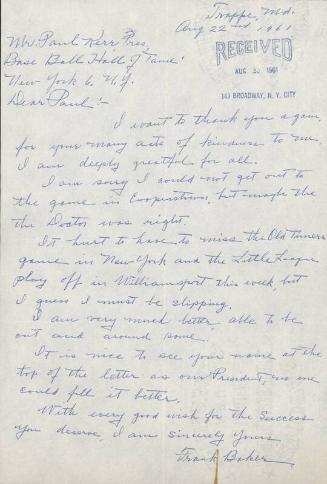 Trappe, Md.
Aug 22nd 1961
Mr. Paul Kerr Pres,
Base Ball Hall of Fame!
New York 6. N.Y.
RECEIVED
AUG 30 1961
149 BROADWAY, N. Y. CITY
Dear Paul:-
I want to thank you again
for your many acts of kindness to me.
I am deeply greatful for all.
I am sorry I could not get out to
the game in Cooperstown, but maybe the
the Doctor was right.
It hurt to have to miss the Old Timers
game in New York and the Little League
play off in Williamsport this week, but
I guess I must be slipping.
I am very much better, able to be
out and around some.
It is nice to see your name at the
top of the letter as our President, no one
could fill it better.
With every good wish for the Success
you deserve, I am sincerely yours
Frank Baker